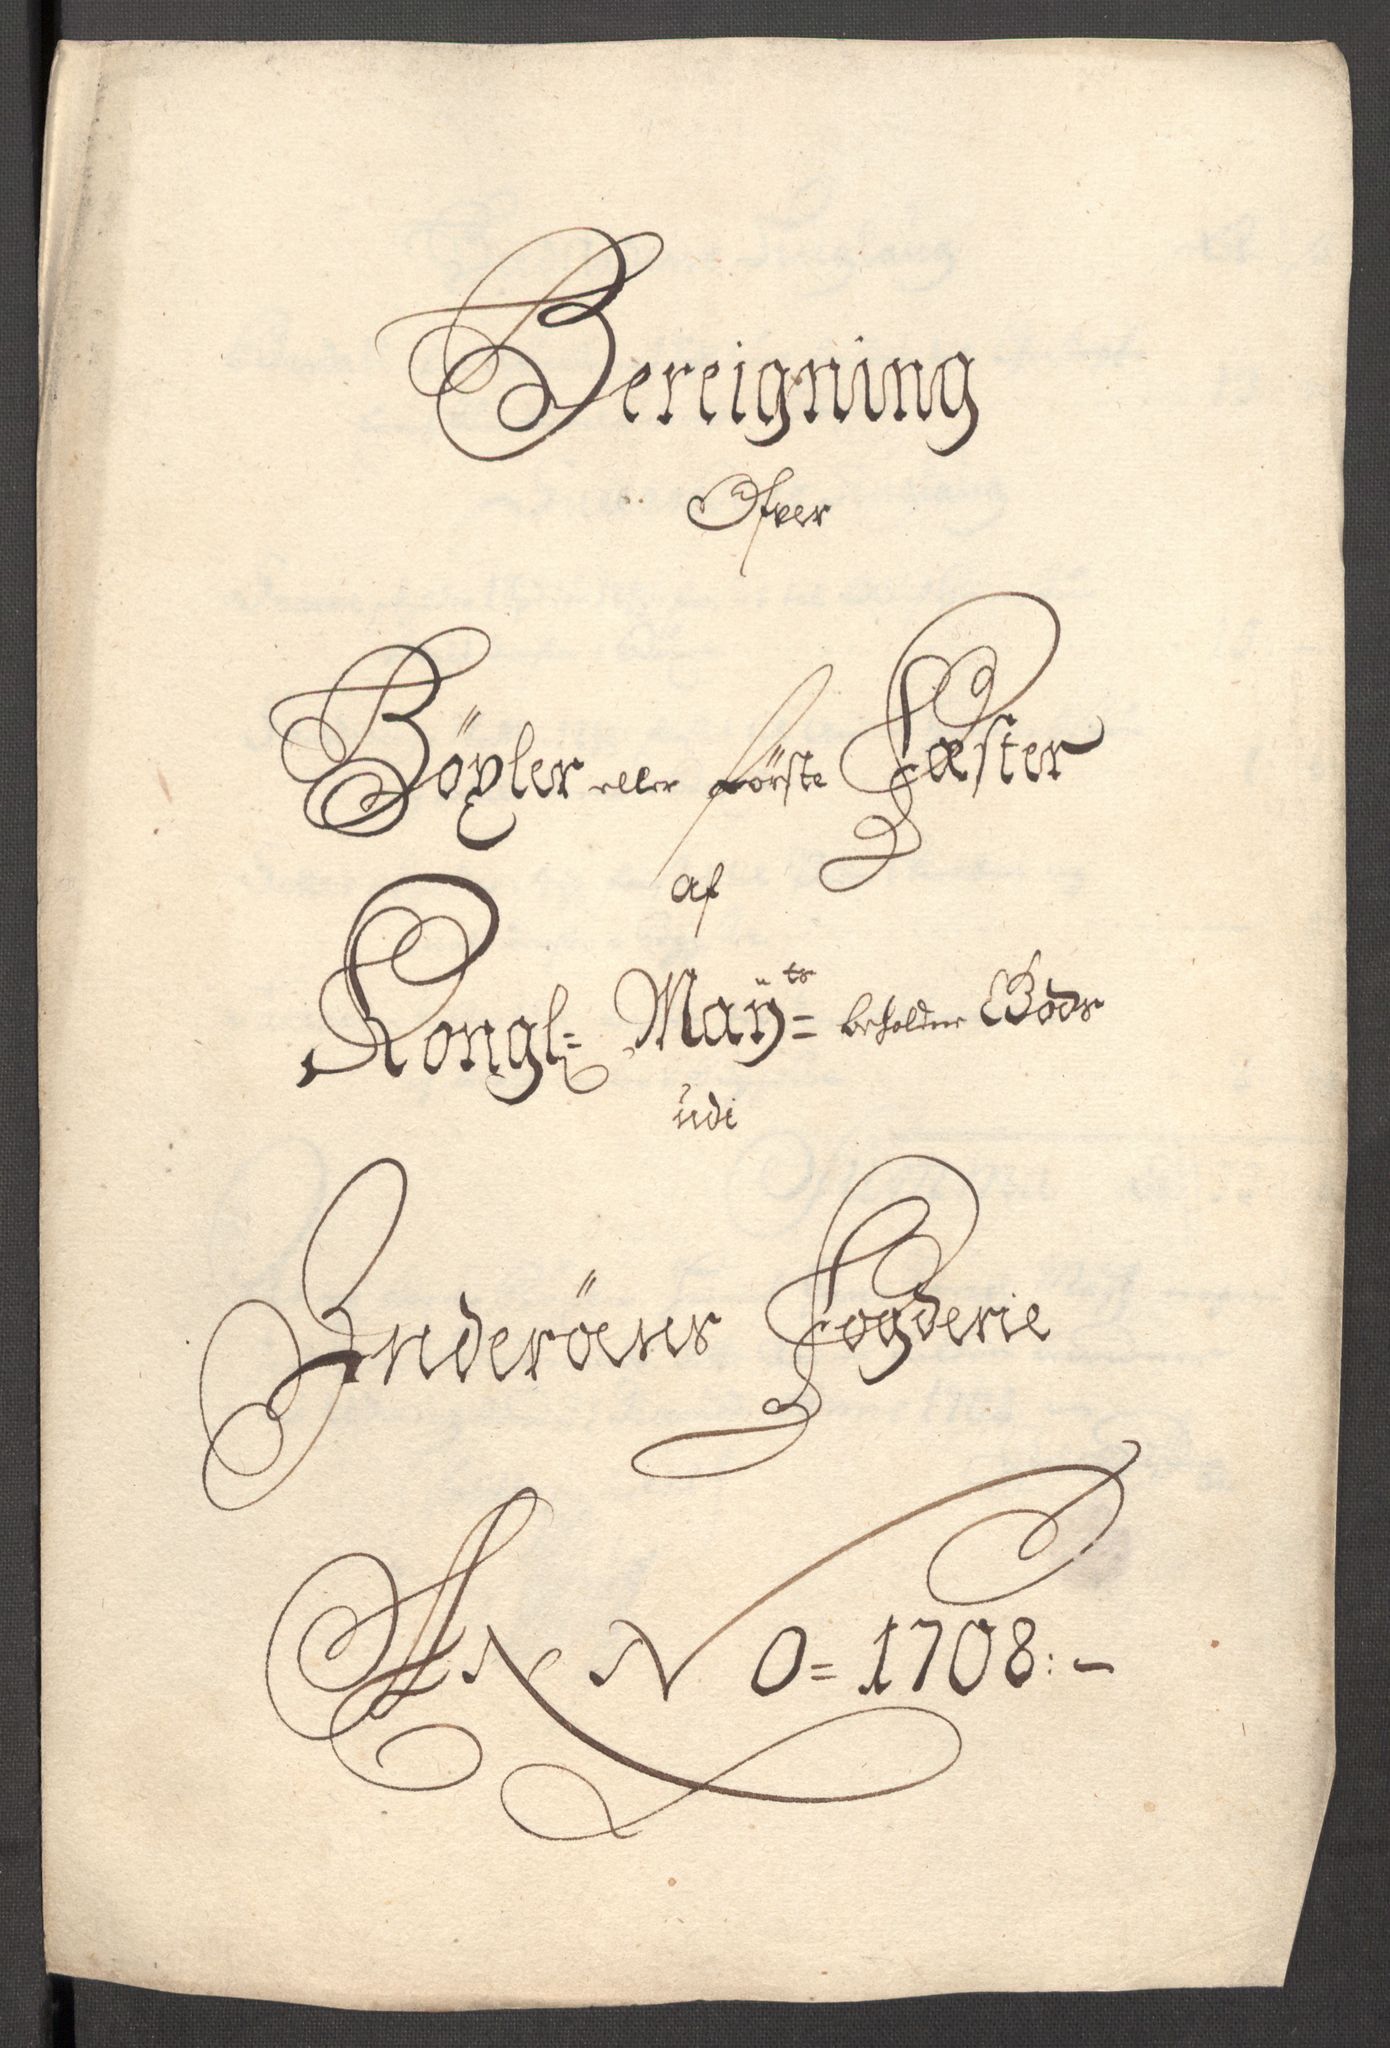 Bereigning
Ofver
Böxler eller förste Fæster
af
Kongl: Maÿ:ts beholdne Gods
udi
Inderöens Fogderie
ANNO = 1708:-